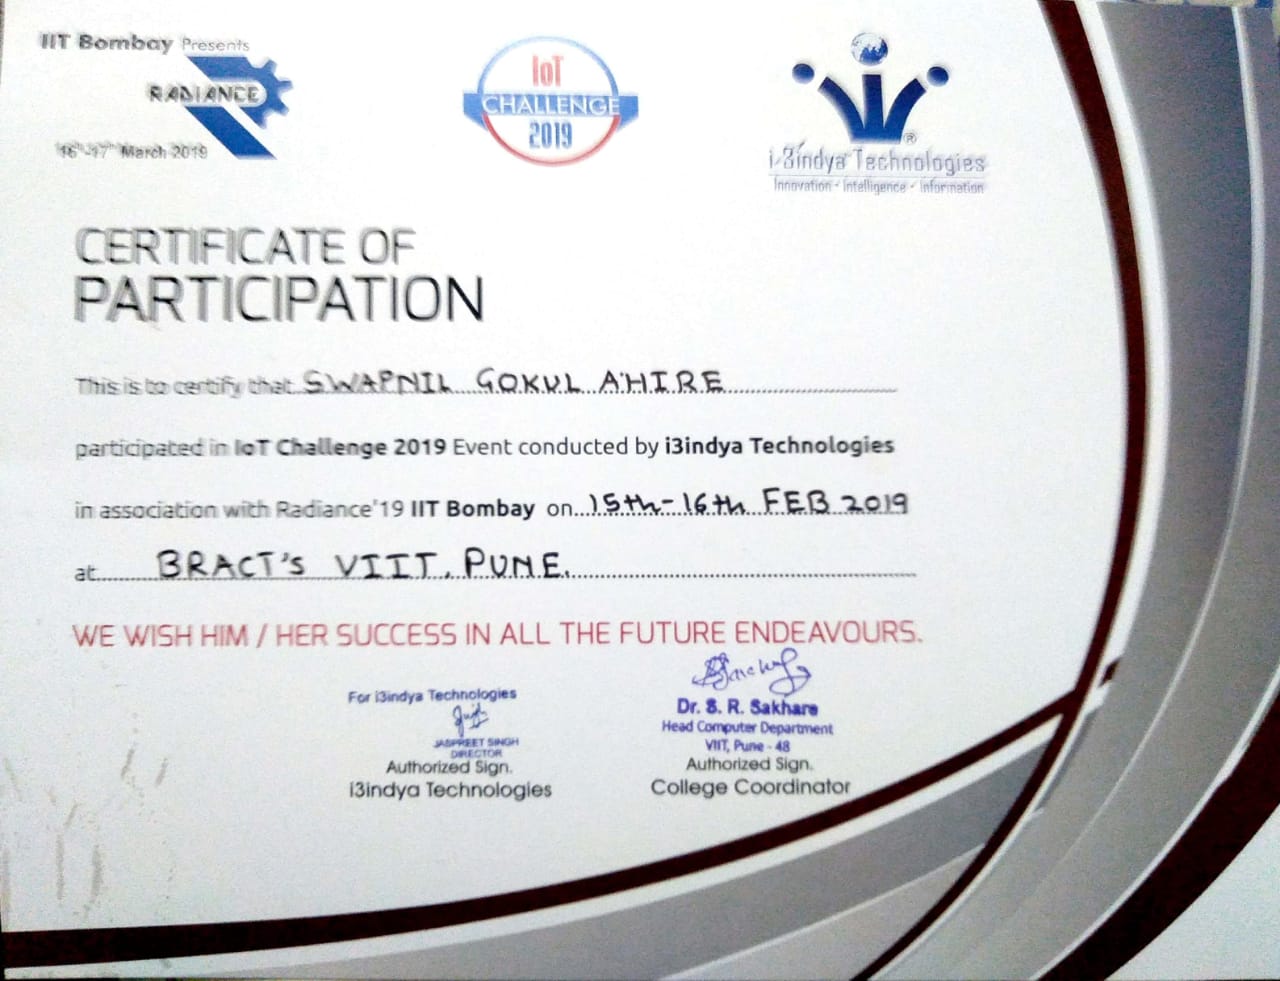 IIT Bombay Presents
RADIANCE
16th-17th March 2019
IoT
CHALLENGE
2019
i-3indya Technologies
Innovation - Intelligence - Information
CERTIFICATE OF
PARTICIPATION
This is to certify that SWAPNIL GOKUL AHIRE
participated in IoT Challenge 2019 Event conducted by i3indya Technologies
in association with Radiance'19 IIT Bombay on 15th-16th FEB 2019
at BRACT'S VIIT, PUNE.
WE WISH HIM / HER SUCCESS IN ALL THE FUTURE ENDEAVOURS.
For i3indya Technologies
JASPREET SINGH
DIRECTOR
Authorized Sign.
i3indya Technologies
Dr. S. R. Sakhare
Head Computer Department
VIIT, Pune - 48
Authorized Sign.
College Coordinator